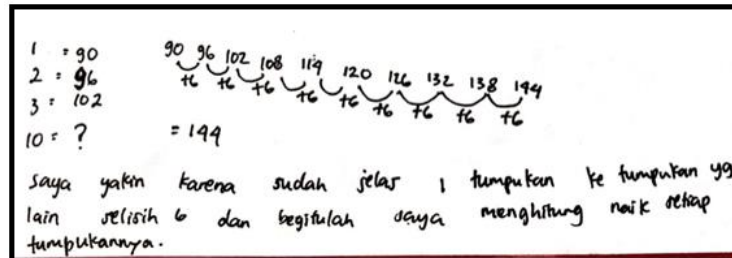 1 = 90
2 = 96
3 = 102
10 = ?
90 96 102 108 114 120 126 132 138 144
+6 +6 +6 +6 +6 +6 +6 +6 +6
= 144
saya yakin karena sudah jelas 1 tumpukan ke tumpukan yg
lain selisih 6 dan begitulah saya menghitung naik setiap
tumpukannya.